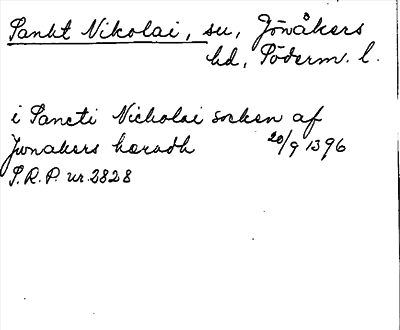 Sankt Nikolai, sn, Jönåkers
hd, Söderm. l.
i Sancti Nicholai socken af
Jwnakers hæradh 20/9 1396
S.R.P. nr. 2828